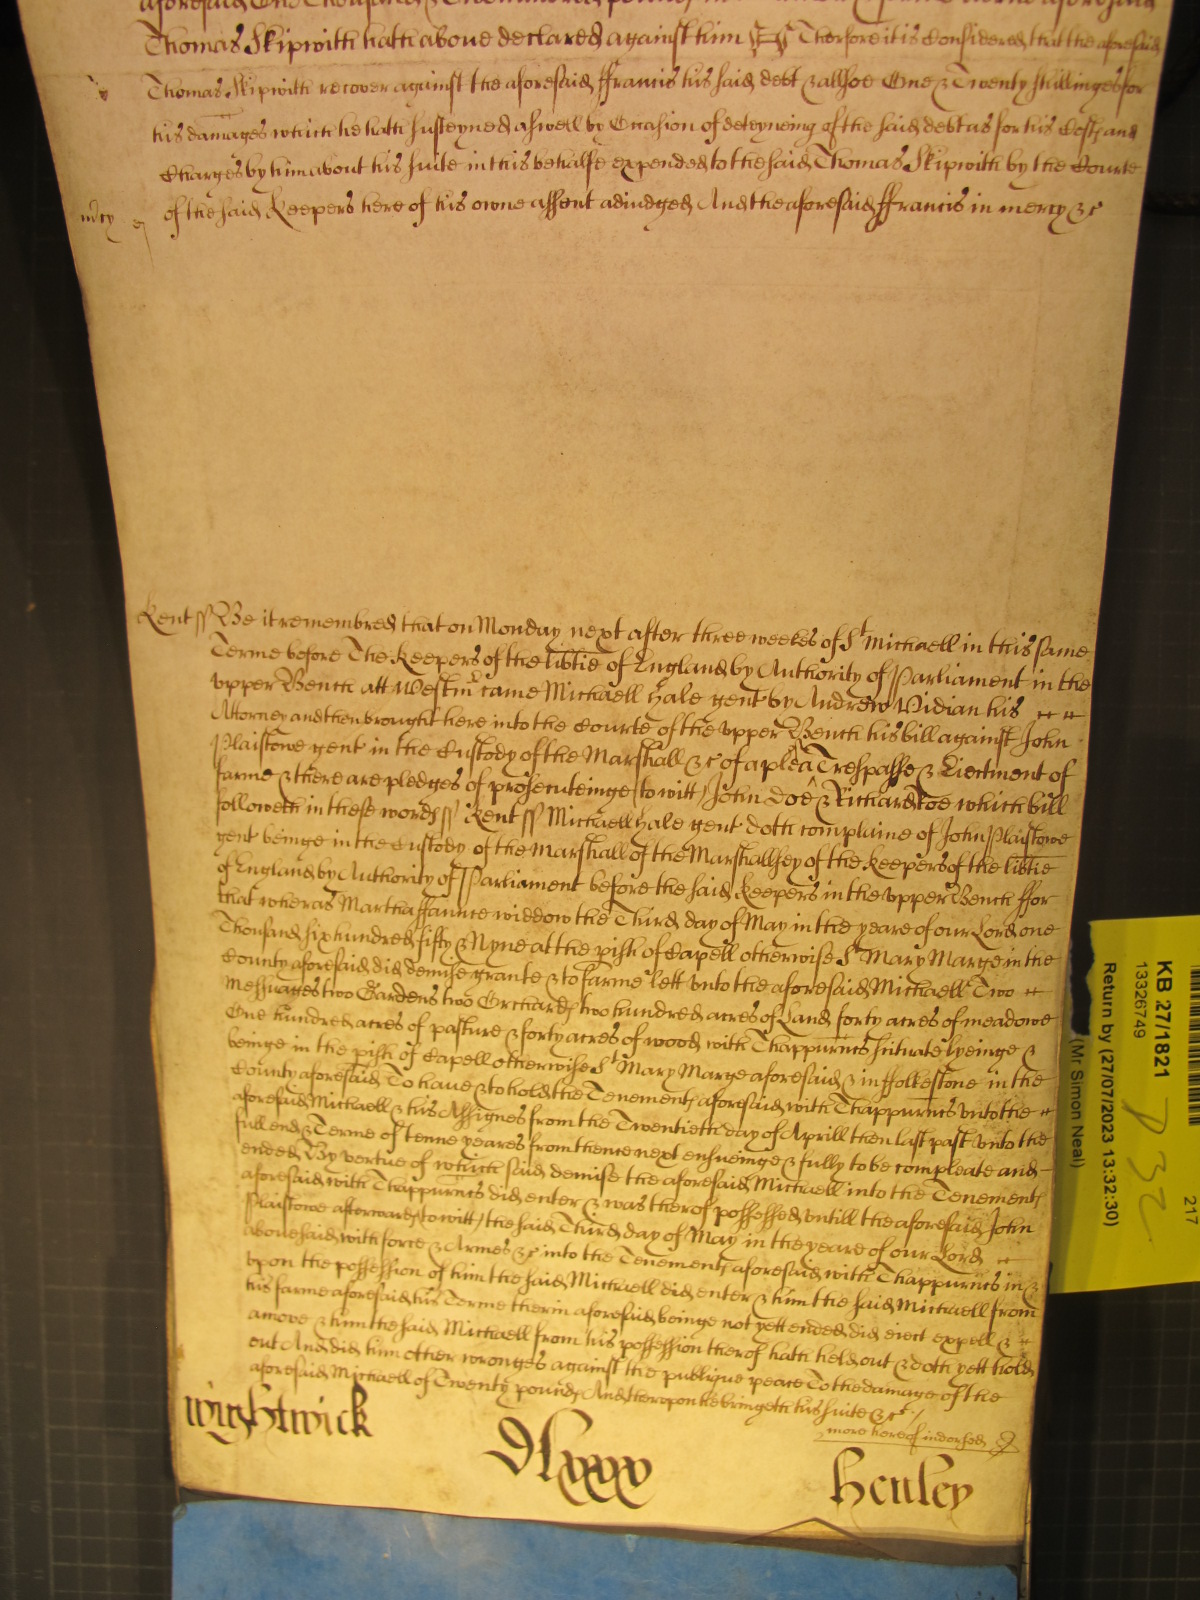 aforesaid One Thousand & Two hundred pounds
Thomas Skipwith hath above declared against him Therfore it is Considered that the aforesaid
Thomas Skipwith recover against the aforesaid ffrancis his said debt & allsoe One & Twenty shillinges for
his damages which he hath susteyned aswell by Occasion of deteyneing of the said debt as for his Costs and
Charges by him about his suite in this behalfe expended to the said Thomas Skipwith by the Courte
of the said Keepers here of his owne assent adiudged And the aforesaid ffrancis in mercy &c
mcy
Kent ss Be it remembred that on Monday next after three weekes of St Michaell in this same
Terme before The Keepers of the libtie of England by Authority of Parliament in the
upper Bench att Westm came Michaell Hale gent by Andrew Vidian his
Attorney and then brought here into the Courte of the upper Bench his bill against John
Plaistowe gent in the Custody of the Marshall &c of a plea Trespasse & Eiectment of
farme & there are pledges of prosecuteinge to witt John Doe & Richard Roe which bill
followeth in these words ss Kent ss Michaell Hale gent doth complaine of John Plaistowe
gent beinge in the Custody of the Marshall of the Marshallsey of the Keepers of the libtie
of England by Authority of Parliament before the said Keepers in the upper Bench ffor
that wheras Martha ffannce widdow the Third day of May in the yeare of our Lord one
Thousand six hundred fifty & Nyne at the pish of Capell otherwise St Mary Marge in the
County aforesaid did demise grante & to farme lett unto the aforesaid Michaell Two
Messuages two Gardens two Orchards two hundred acres of Land forty acres of meadowe
One hundred acres of pasture & forty acres of wood with Thappurtncs scituate lyeinge &
beinge in the pish of Capell otherwise St Mary Marge aforesaid & in ffolkestone in the
County aforesaid To have & to hold the Tenements aforesaid with Thappurtncs unto the
aforesaid Michaell & his Assignes from the Twentieth day of Aprill then last past unto the
full end & Terme of tenne yeares from thence next ensueinge & fully to be compleate and
ended By vertue of which said demise the aforesaid Michaell into the Tenements
aforesaid with Thappurtncs did enter & was therof possessed untill the aforesaid John
Plaistowe afterwards to witt the said Third day of May in the yeare of our Lord
abovesaid with force & Armes &c into the Tenements aforesaid with Thappurtncs in &
upon the possession of him the said Michaell did enter & him the said Michaell from
his farme aforesaid his Terme therin aforesaid beinge not yett ended did eiect expell &
amove & him the said Michaell from his possession therof hath held out & doth yett hold
out And did him other wronges against the publique peace To the damage of the
aforesaid Michaell of Twenty pounds And therupon he bringeth his suite &c
more hereof indorsed
Wightwick
Henley
KB 27/1821
13326749
Return by (27/07/2023 13:32:30)
(Mr Simon Neal)
217